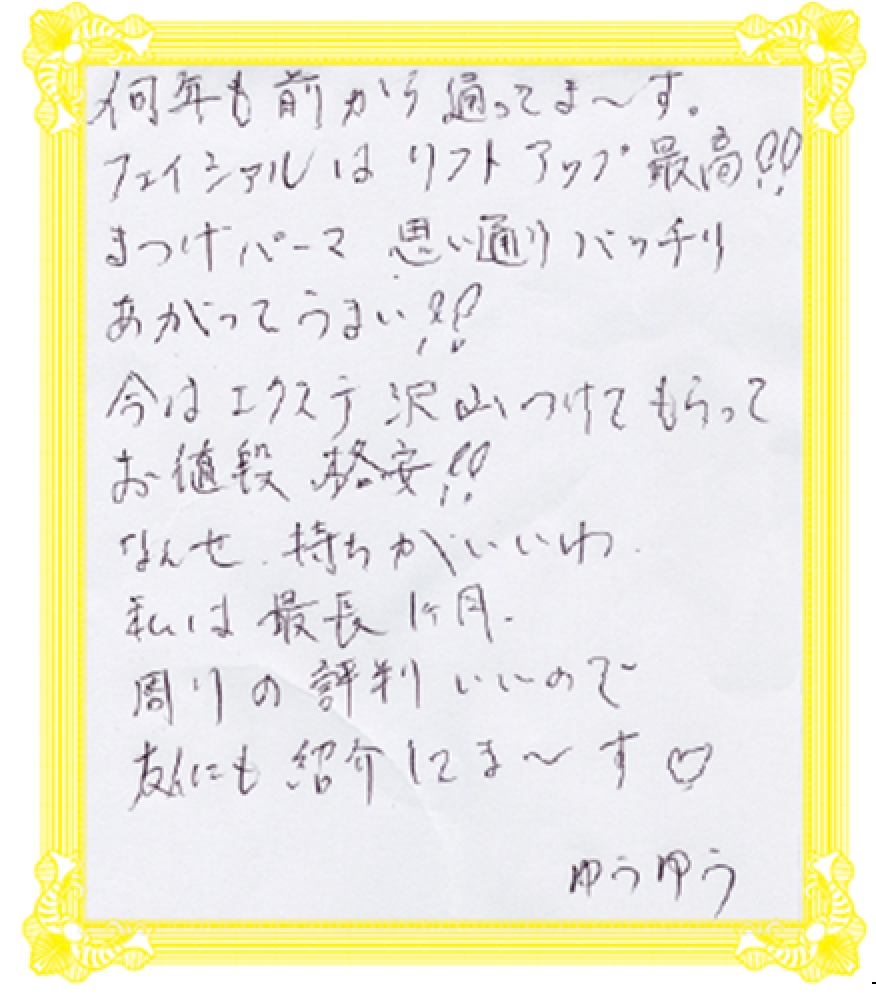 何年も前から通ってま〜す。
フェイシャルはリフトアップ最高!!
まつげパーマ 思い通りバッチリ
あがってうまい!!
今はエクステ沢山つけてもらって
お値段 格安!!
なんせ、持ちがいいわ。
私は最長1ヶ月。
周りの評判いいので
友人にも紹介してま〜す♡
ゆうゆう